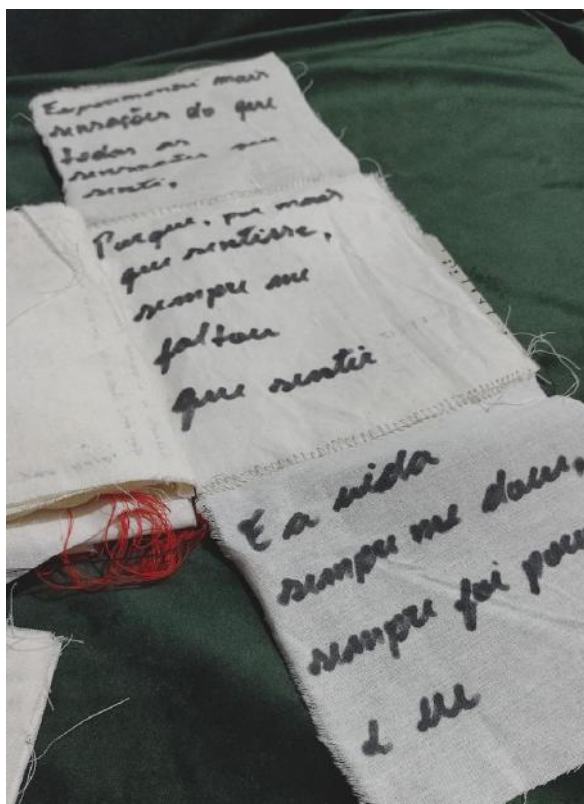 Experimentei mais
sensações do que
todas as
sensações que
senti,
Porque, por mais
que sentisse,
sempre me
faltou
que sentir
E a vida
sempre me doeu,
sempre foi pou
e eu